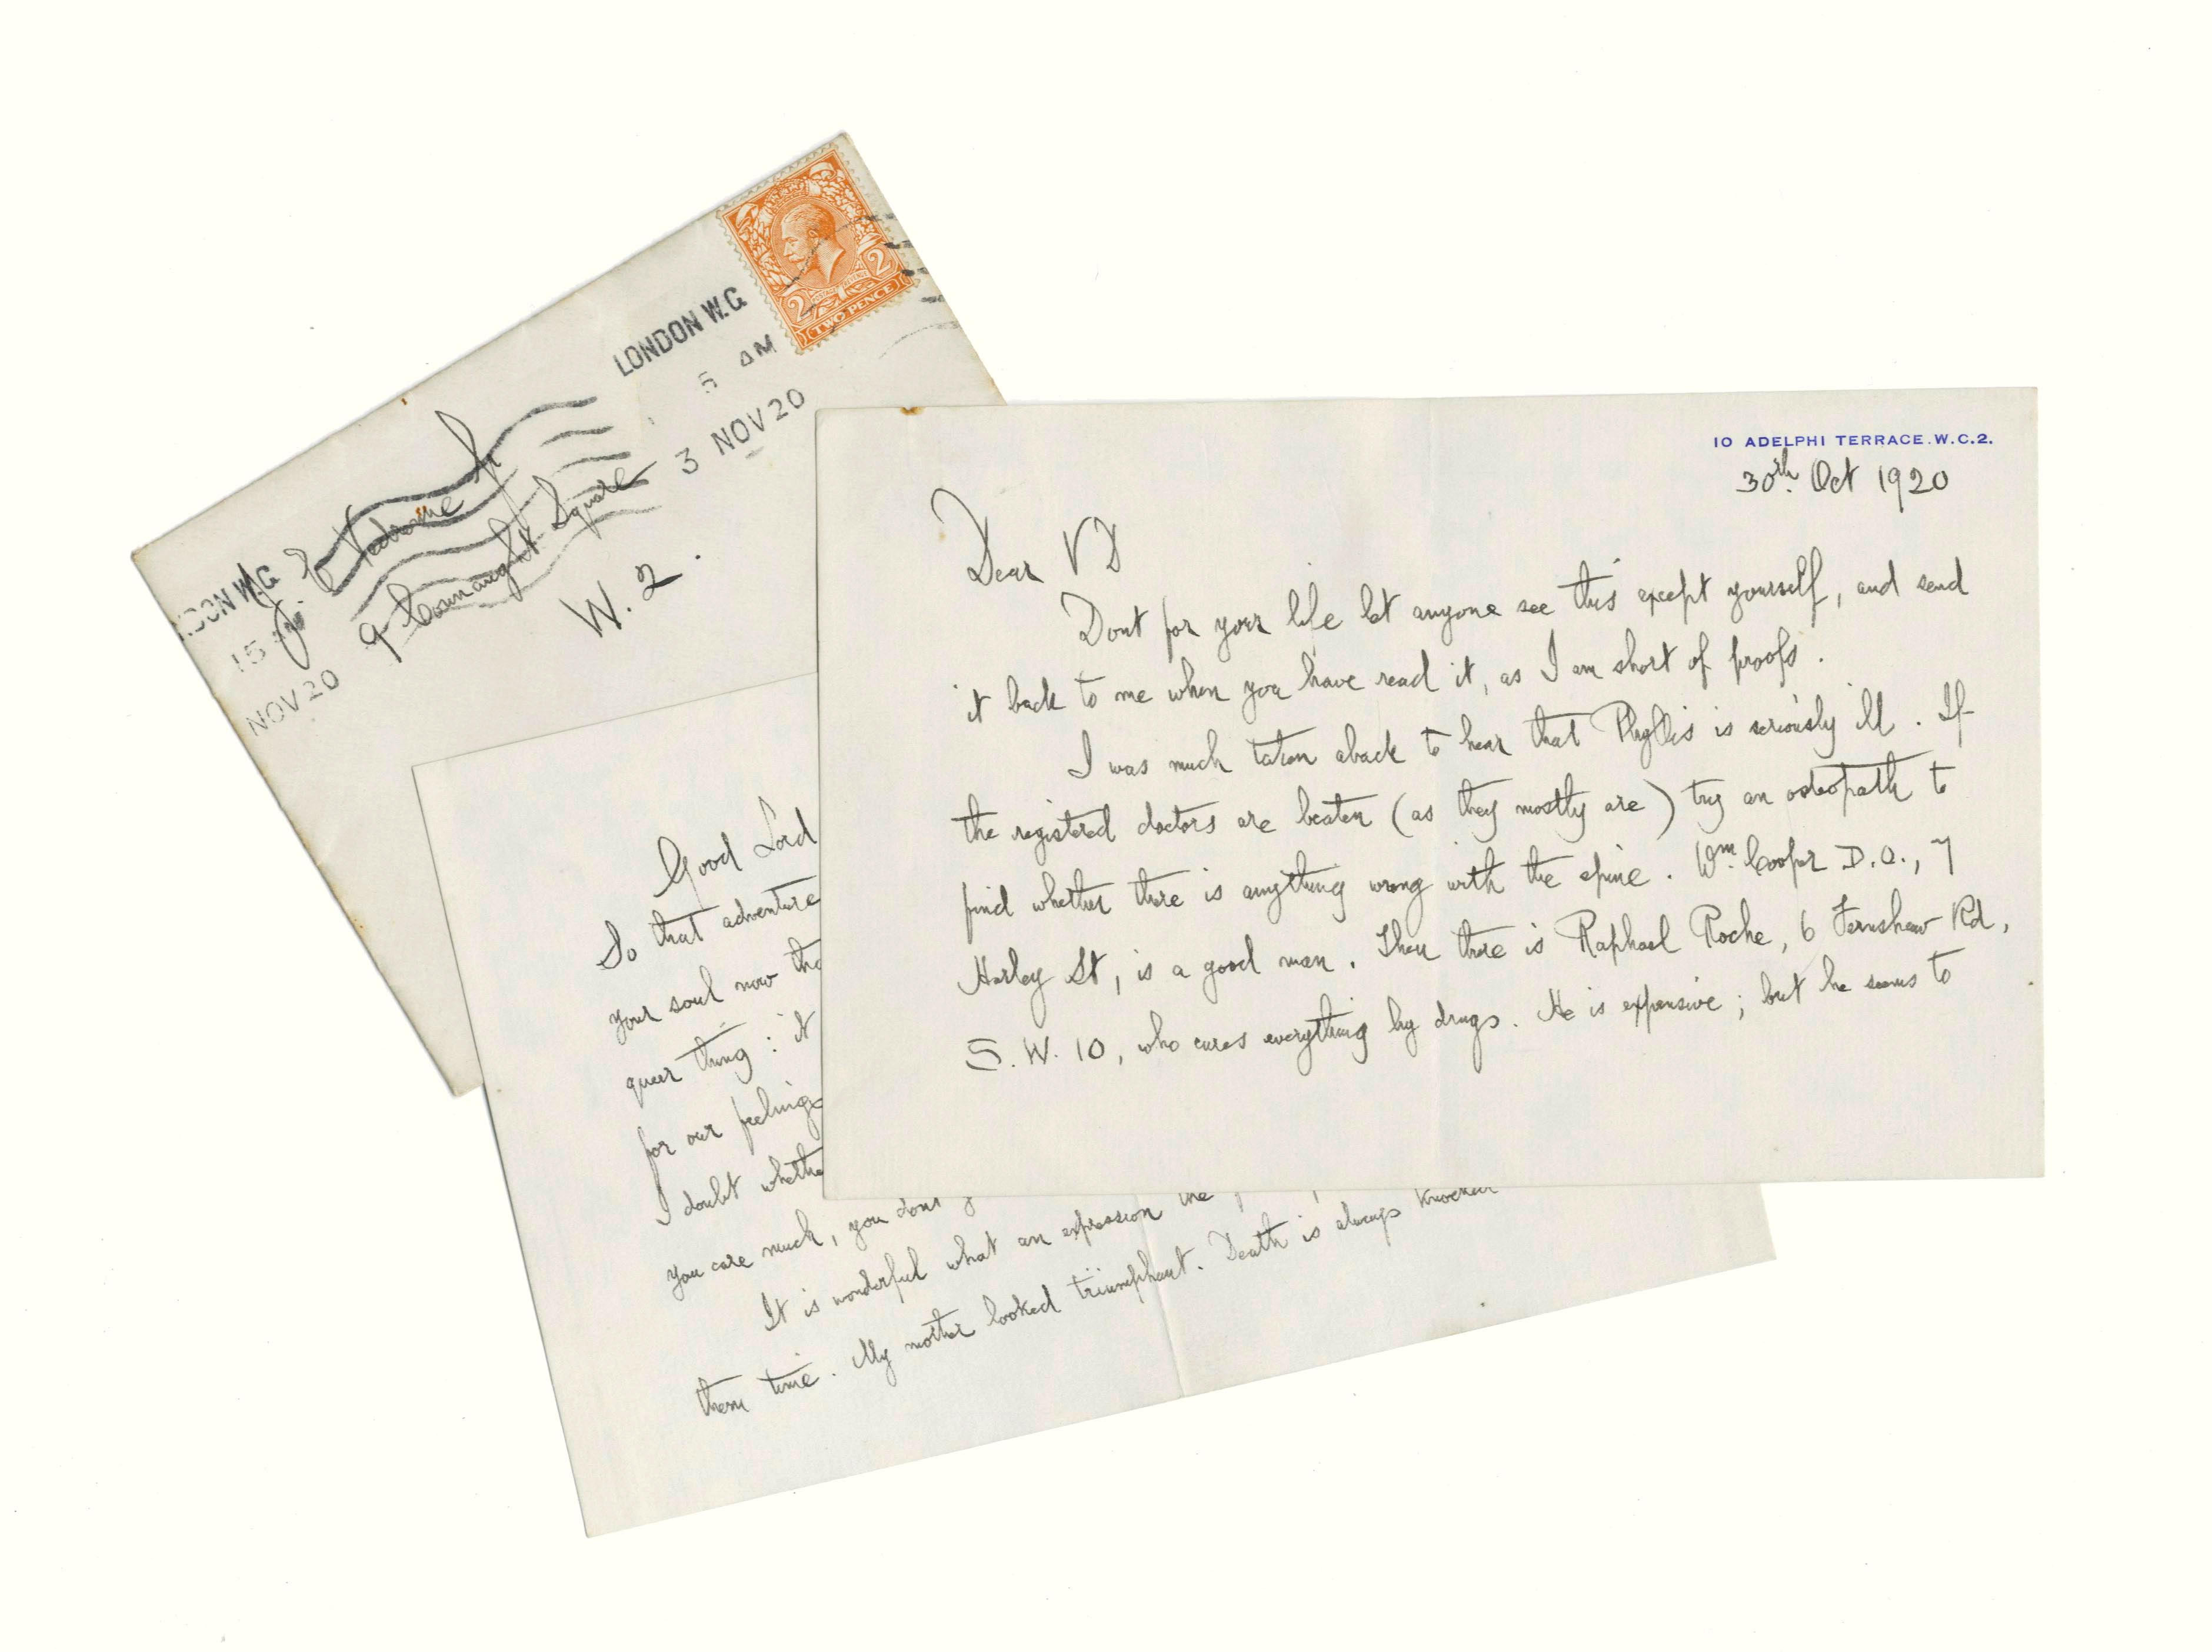 LONDON W.C.
5 AM
3 NOV 20
2 2
POSTAGE REVENUE
TWO PENCE
NDON W.C.
15
NOV 20
J. E. Vedrenne
9 Connaught Square
W. 2.
10 ADELPHI TERRACE. W.C.2.
30th. Oct 1920
Dear VD
Dont for your life let anyone see this except yourself, and send
it back to me when you have read it, as I am short of proofs.
I was much taken aback to hear that Phyllis is seriously ill. If
the registered doctors are beaten (as they mostly are) try an osteopath to
find whether there is anything wrong with the spine. Wm. Cooper D.O., 7
Harley St, is a good man. Then there is Raphael Roche, 6 Fernshaw Rd,
S.W. 10, who cures everything by drugs. He is expensive; but he seems to
Good Lord
So that adventure
your soul now
queer thing: it
for our feelings
I doubt
you care much, you dont
It is wonderful what an expression the
them time. My mother looked triumphant. Death is always